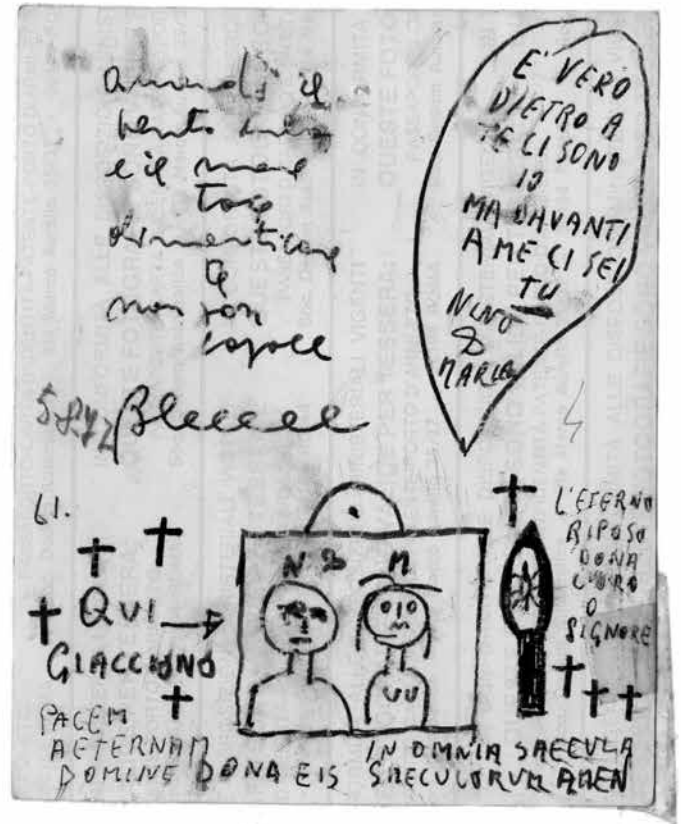 il
e il mare
dimenticare
te
non son
capace
Bleeeee
E' VERO
DIETRO A
TE CI SONO
IO
MA DAVANTI
A ME CI SEI
TU
NINO
&
MARIA
61.
QUI
GIACCIONO
N & M
L'ETERNO
RIPOSO
DONA
LORO
O
SIGNORE
PACEM
AETERNAM
DOMINE DONA EIS
IN OMNIA SAECULA
SAECULORUM AMEN